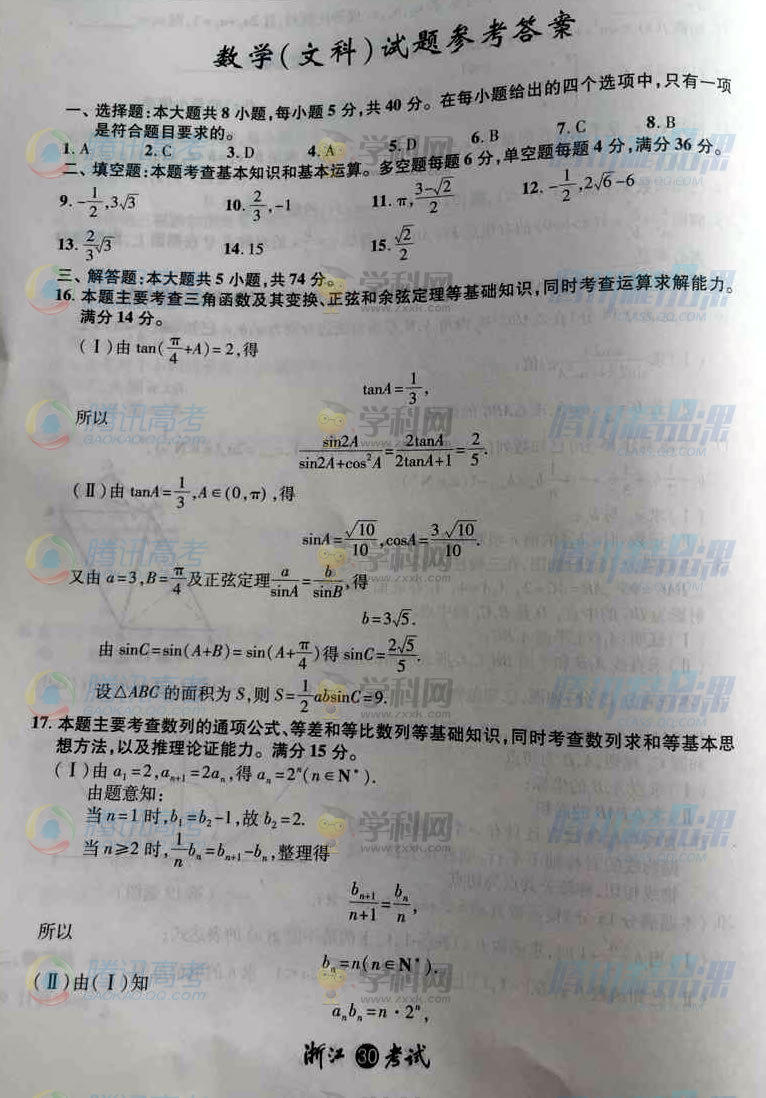 数学(文科)试题参考答案
一、选择题:本大题共8小题,每小题5分,共40分。在每小题给出的四个选项中,只有一项
是符合题目要求的。
1. A 2. C 3. D 4. A 5. D 6. B 7. C 8. B
二、填空题:本题考查基本知识和基本运算。多空题每题6分,单空题每题4分,满分36分。
9. -1/2, 3√3 10. 2/3, -1 11. π, (3-√2)/2 12. -1/2, 2√6-6
13. 2/3√3 14. 15 15. √2/2
三、解答题:本大题共5小题,共74分。
16. 本题主要考查三角函数及其变换、正弦和余弦定理等基础知识,同时考查运算求解能力。
满分14分。
(Ⅰ)由 tan(π/4+A)=2,得
tanA=1/3,
所以
sin2A/(sin2A+cos²A)=2tanA/(2tanA+1)=2/5.
(Ⅱ)由 tanA=1/3,A∈(0,π),得
sinA=√10/10,cosA=3√10/10.
又由 a=3,B=π/4及正弦定理a/sinA=b/sinB,得
b=3√5.
由 sinC=sin(A+B)=sin(A+π/4)得 sinC=2√5/5.
设△ABC的面积为S,则 S=1/2absinC=9.
17. 本题主要考查数列的通项公式、等差和等比数列等基础知识,同时考查数列求和等基本思
想方法,以及推理论证能力。满分15分。
(Ⅰ)由 a₁=2,aₙ₊₁=2aₙ,得 aₙ=2ⁿ(n∈N*).
由题意知:
当 n=1 时,b₁=b₂-1,故 b₂=2.
当 n≥2 时,1/n bₙ=bₙ₊₁-bₙ,整理得
bₙ₊₁/(n+1)=bₙ/n,
所以
bₙ=n(n∈N*).
(Ⅱ)由(Ⅰ)知
aₙbₙ=n·2ⁿ,
浙江 30 考试
腾讯高考
GAOKAO.QQ.COM
学科网
www.zxxk.com
腾讯精品课
CLASS.QQ.COM